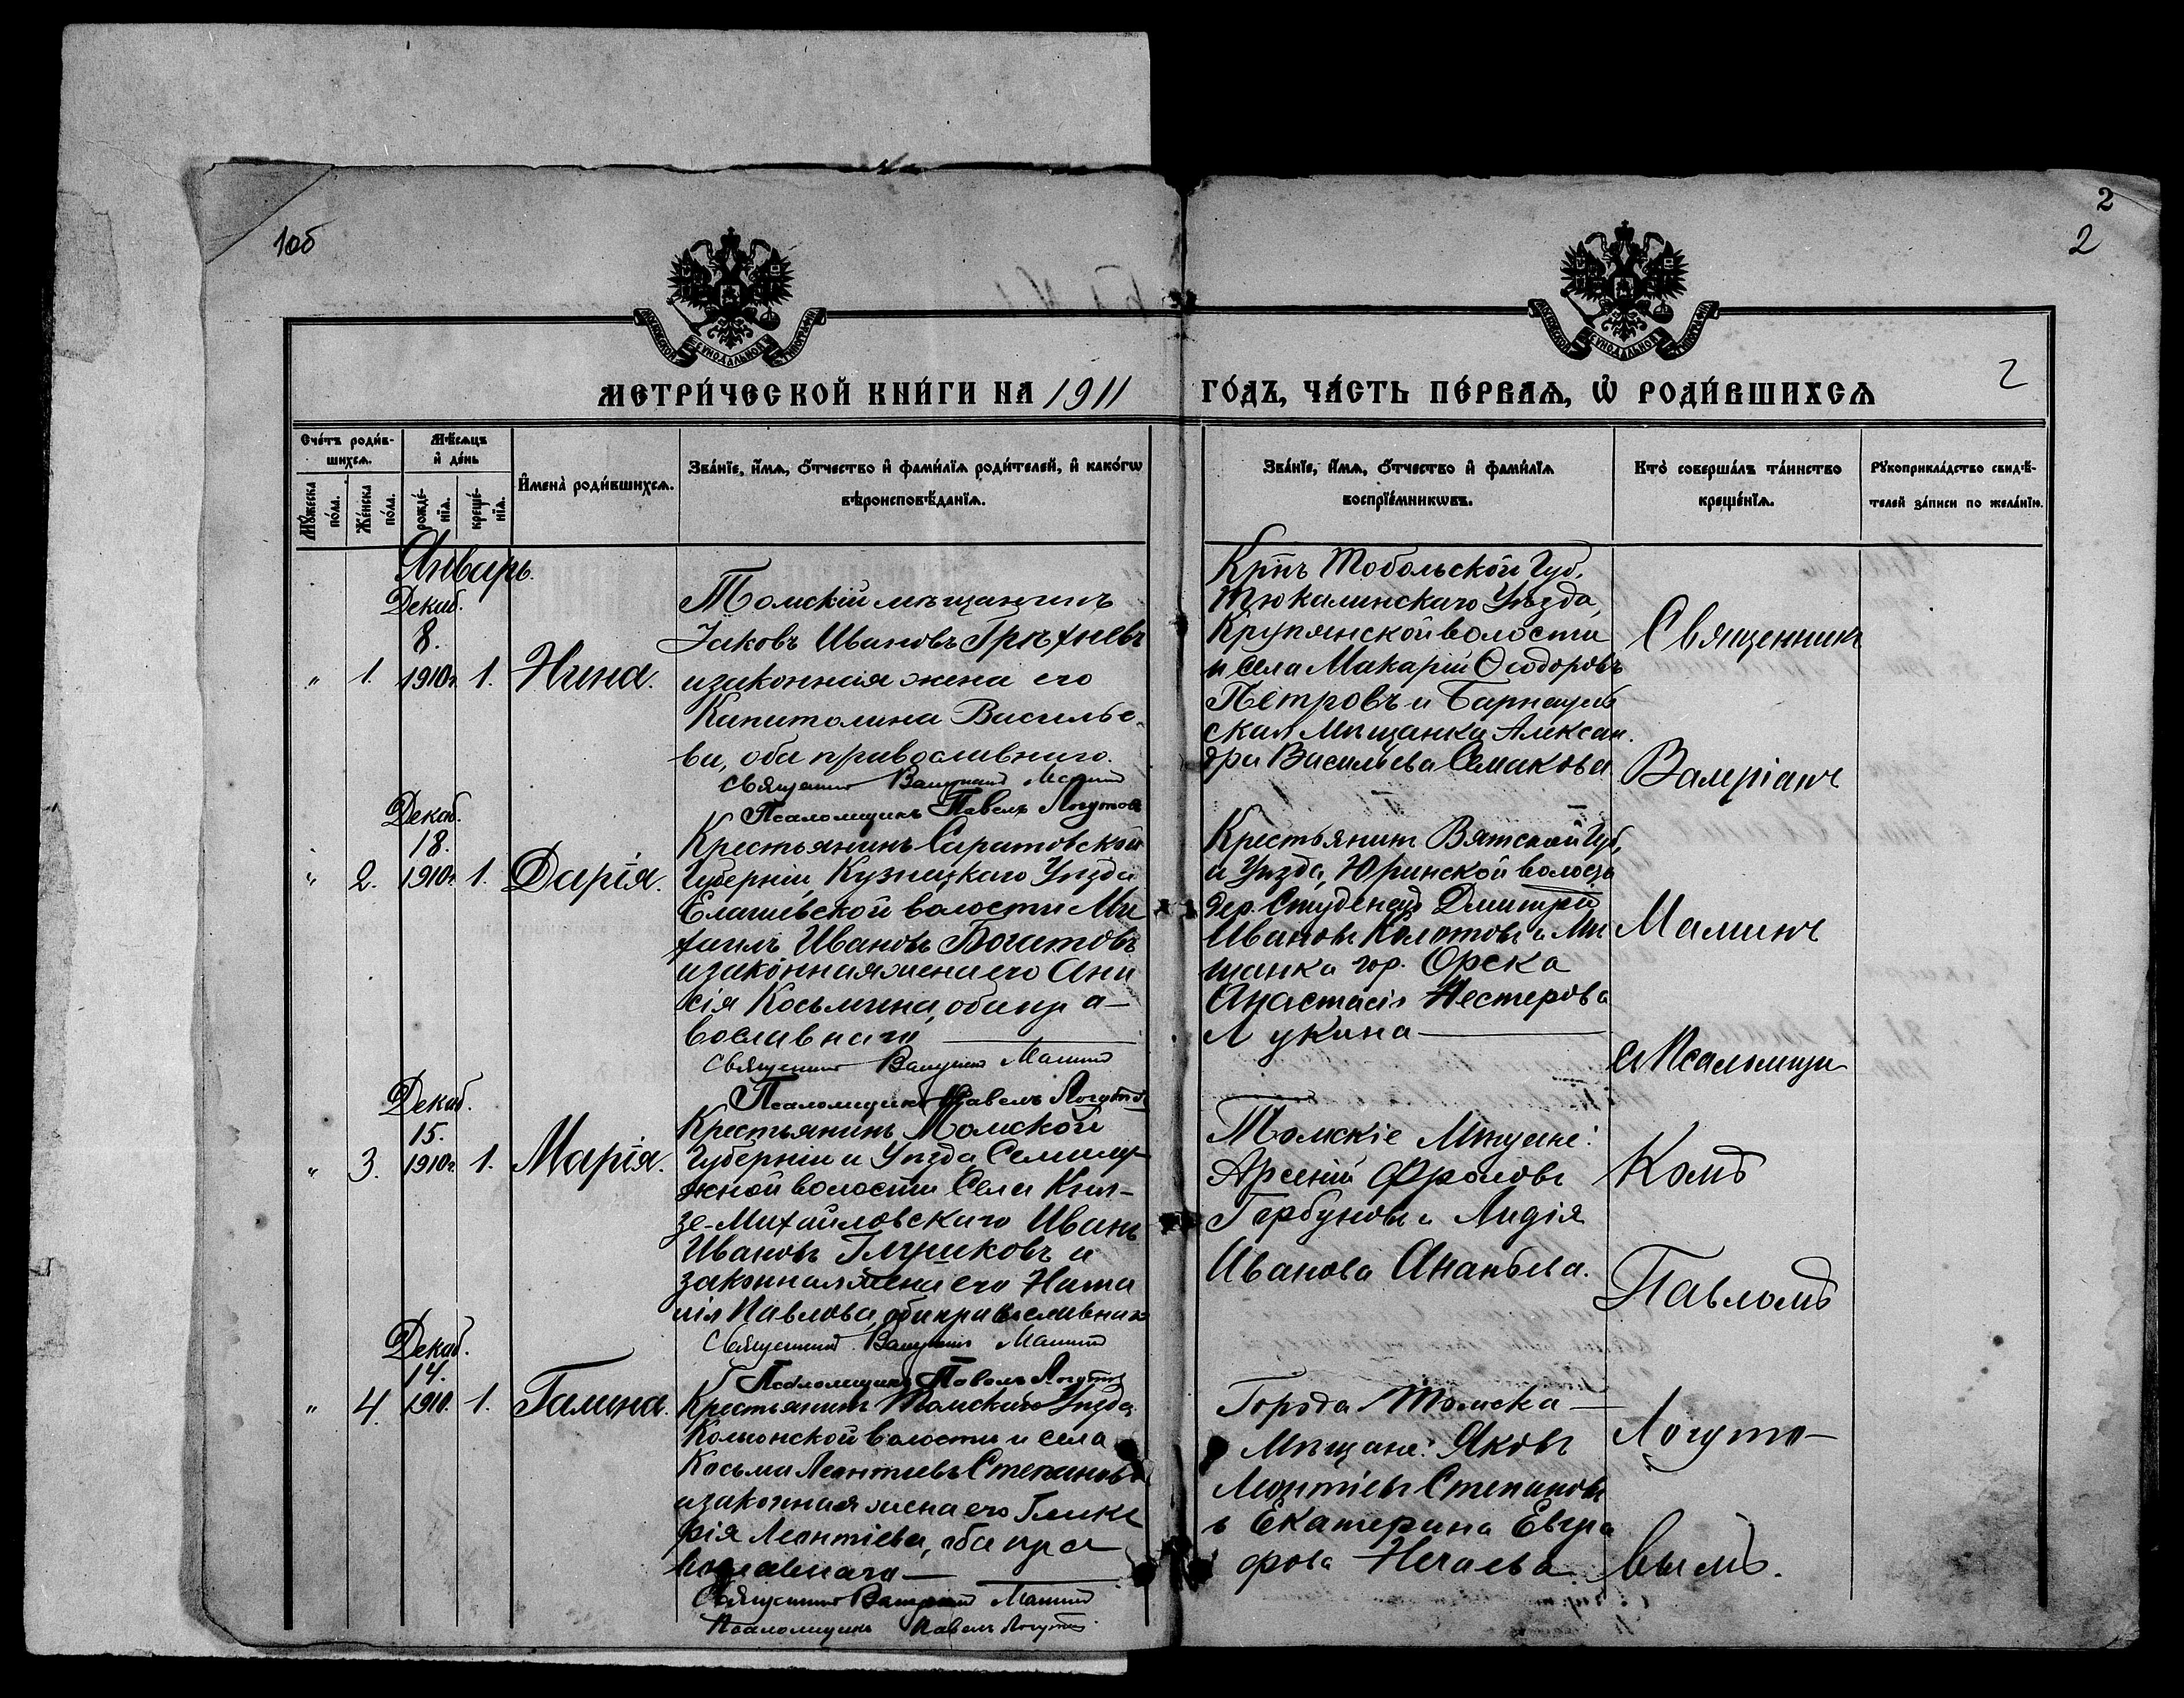 1об
2
2
2
МОСКОВСКОЙ СѴНОДАЛЬНОЙ ТИПОГРАФІИ
МОСКОВСКОЙ СѴНОДАЛЬНОЙ ТИПОГРАФІИ
МЕТРИ́ЧЕСКОЙ КНИ́ГИ НА 1911 ГО́ДЪ, ЧА́СТЬ ПЕ́РВАѦ, Ѽ РОДИ́ВШИХСѦ
Сче́тъ роди́в-
шихсѧ.
Мꙋ́жеска
по́ла.
Же́нска
по́ла.
Мѣ́сѧцъ
и҆ де́нь
рожде́-
нїѧ.
креще́-
нїѧ.
И҆мена̀ роди́вшихсѧ.
Зва́нїе, и҆́мѧ, ѻ҆́тчество и҆ фами́лїѧ роди́телей, и҆ како́гѡ
вѣроисповѣ́данїѧ.
Зва́нїе, и҆́мѧ, ѻ҆́тчество и҆ фами́лїѧ
воспрїе́мникѡвъ.
Кто̀ соверша́лъ та́инство
креще́нїѧ.
Рꙋкоприкла́дство свидѣ́-
телей за́писи по жела́нїю.
Январь.
Декаб.
8.
„ 1. 1910г. 1. Нина.
Томскій мѣщанинъ
Іаковъ Ивановъ Грѣхневъ
и законная жена его
Капитолина Василье-
ва, оба православнаго.
Священникъ Валеріанъ Маминъ
Псаломщикъ Павелъ Логутовъ
Крнъ Тобольской Губ.
Тюкалинскаго Уѣзда,
Крупянской волости
и села Макарій Ѳеодоровъ
Петровъ и Барнауль
ская Мѣщанка Алексан.
дра Васильева Семакова
Декаб.
18.
„ 2. 1910г. 1. Дарія.
Крестьянинъ Саратовской
Губерніи, Кузнецкаго Уѣзда
Елашевской волости Ми
хаилъ Ивановъ Богатовъ
и законная жена его Ани
сія Косьмина, оба пра-
вославнаго
Священникъ Валеріанъ Маминъ
Псаломщикъ Павелъ Логутовъ
Крестьянинъ Вятской Губ,
и Уѣзда, Юринской волости
дер. Студенец Дмитрій
Ивановъ Колотовъ и Мѣ
щанка гор. Орска
Анастасія Нестерова
Лукина
Декаб.
15.
„ 3. 1910г. 1. Марія.
Крестьянинъ Томской
Губерніи и Уѣзда Семилу
жной волости Села Кня-
зе-Михайловскаго Иванъ
Ивановъ Глушковъ и
законная жена его Ната
лія Павлова, оба православнаго
Священникъ Валеріанъ Маминъ
Псаломщикъ Павелъ Логутовъ
Томскіе Мѣщане:
Арсеній Фроловъ
Горбуновъ и Лидія
Иванова Ананьева.
Декаб.
14.
„ 4. 1910. 1. Галина.
Крестьянинъ Томскаго Уѣзда
Кольонской волости и села
Косьма Леонтьевъ Степановъ
и законная жена его Глике
рія Леонтіева, оба пра
вославнаго
Священникъ Валеріанъ Маминъ
Псаломщикъ Павелъ Логутовъ
Города Томска
Мѣщане: Яковъ
Леонтіевъ Степановъ
и Екатерина Евгра
фова Нечаева
Священник
Валеріанъ
Маминъ
съ Псаломщи
комъ
Павломъ
Логуто-
вымъ.